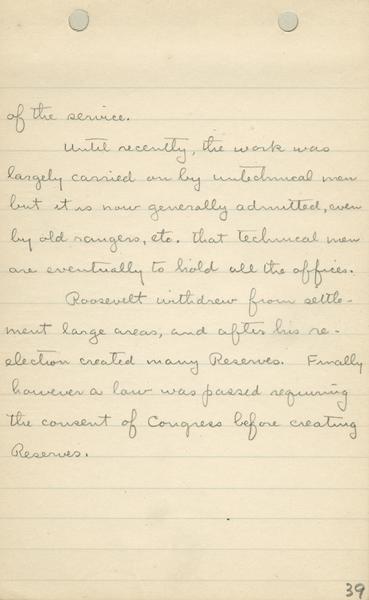 of the service.
Until recently, the work was
largely carried on by untechnical men
but it is now generally admitted, even
by old rangers, etc. that technical men
are eventually to hold all the offices.
Roosevelt withdrew from settle-
ment large areas, and after his re-
election created many Reserves. Finally
however a law was passed requiring
the consent of Congress before creating
Reserves.
39